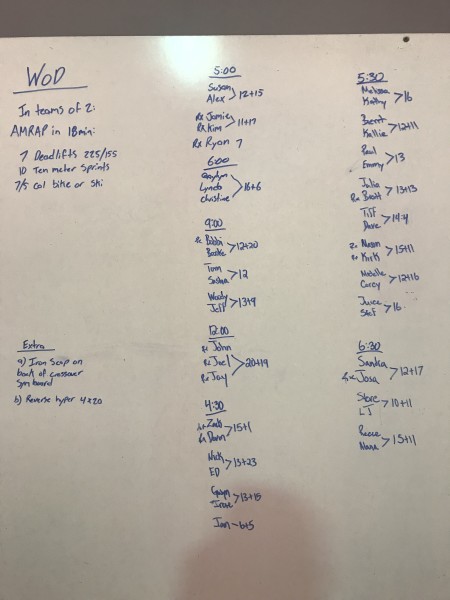 WOD
In teams of 2:
AMRAP in 18min:
7 Deadlifts 225/155
10 Ten meter Sprints
7/5 Cal bike or Ski
Extra
a) Iron Scap on
back of crossover
Sym board
b) Reverse hyper 4x20
5:00
Susan
Alex > 12+15
Rx Jamie
Rx Kim > 11+17
Rx Ryan 7
6:00
Lynda
Christine > 16+6
9:00
Rx Bobbi
> 12+20
Tom
Sasha > 12
Woody
Jeff > 13+9
12:00
Rx John
Rx Joel
Rx Jay > 20+19
4:30
Rx Zach
Rx Dann > 15+1
Nick
ED > 13+23
> 13+15
Jan - 6+5
5:30
Melissa
Kathy > 16
Brent
Kallie > 12+11
Paul
Emmy > 13
Julie
Rx Brett > 13+13
Tiff
Dave > 14+4
Rx Mason
Rx Kirk > 15+11
Michelle
Corey > 12+16
Stef > 16
6:30
Sandra
Rx Josa > 12+17
Steve
LJ > 10+11
Reese
> 13+11